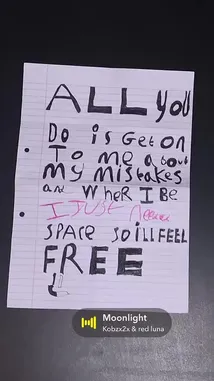 ALL YOU
Do is Get on
To me about
my mistakes
and WHeR I Be
I JUST Needed
SPACE SO iLL FEEL
FREE
Moonlight
Kobzx2x & red luna